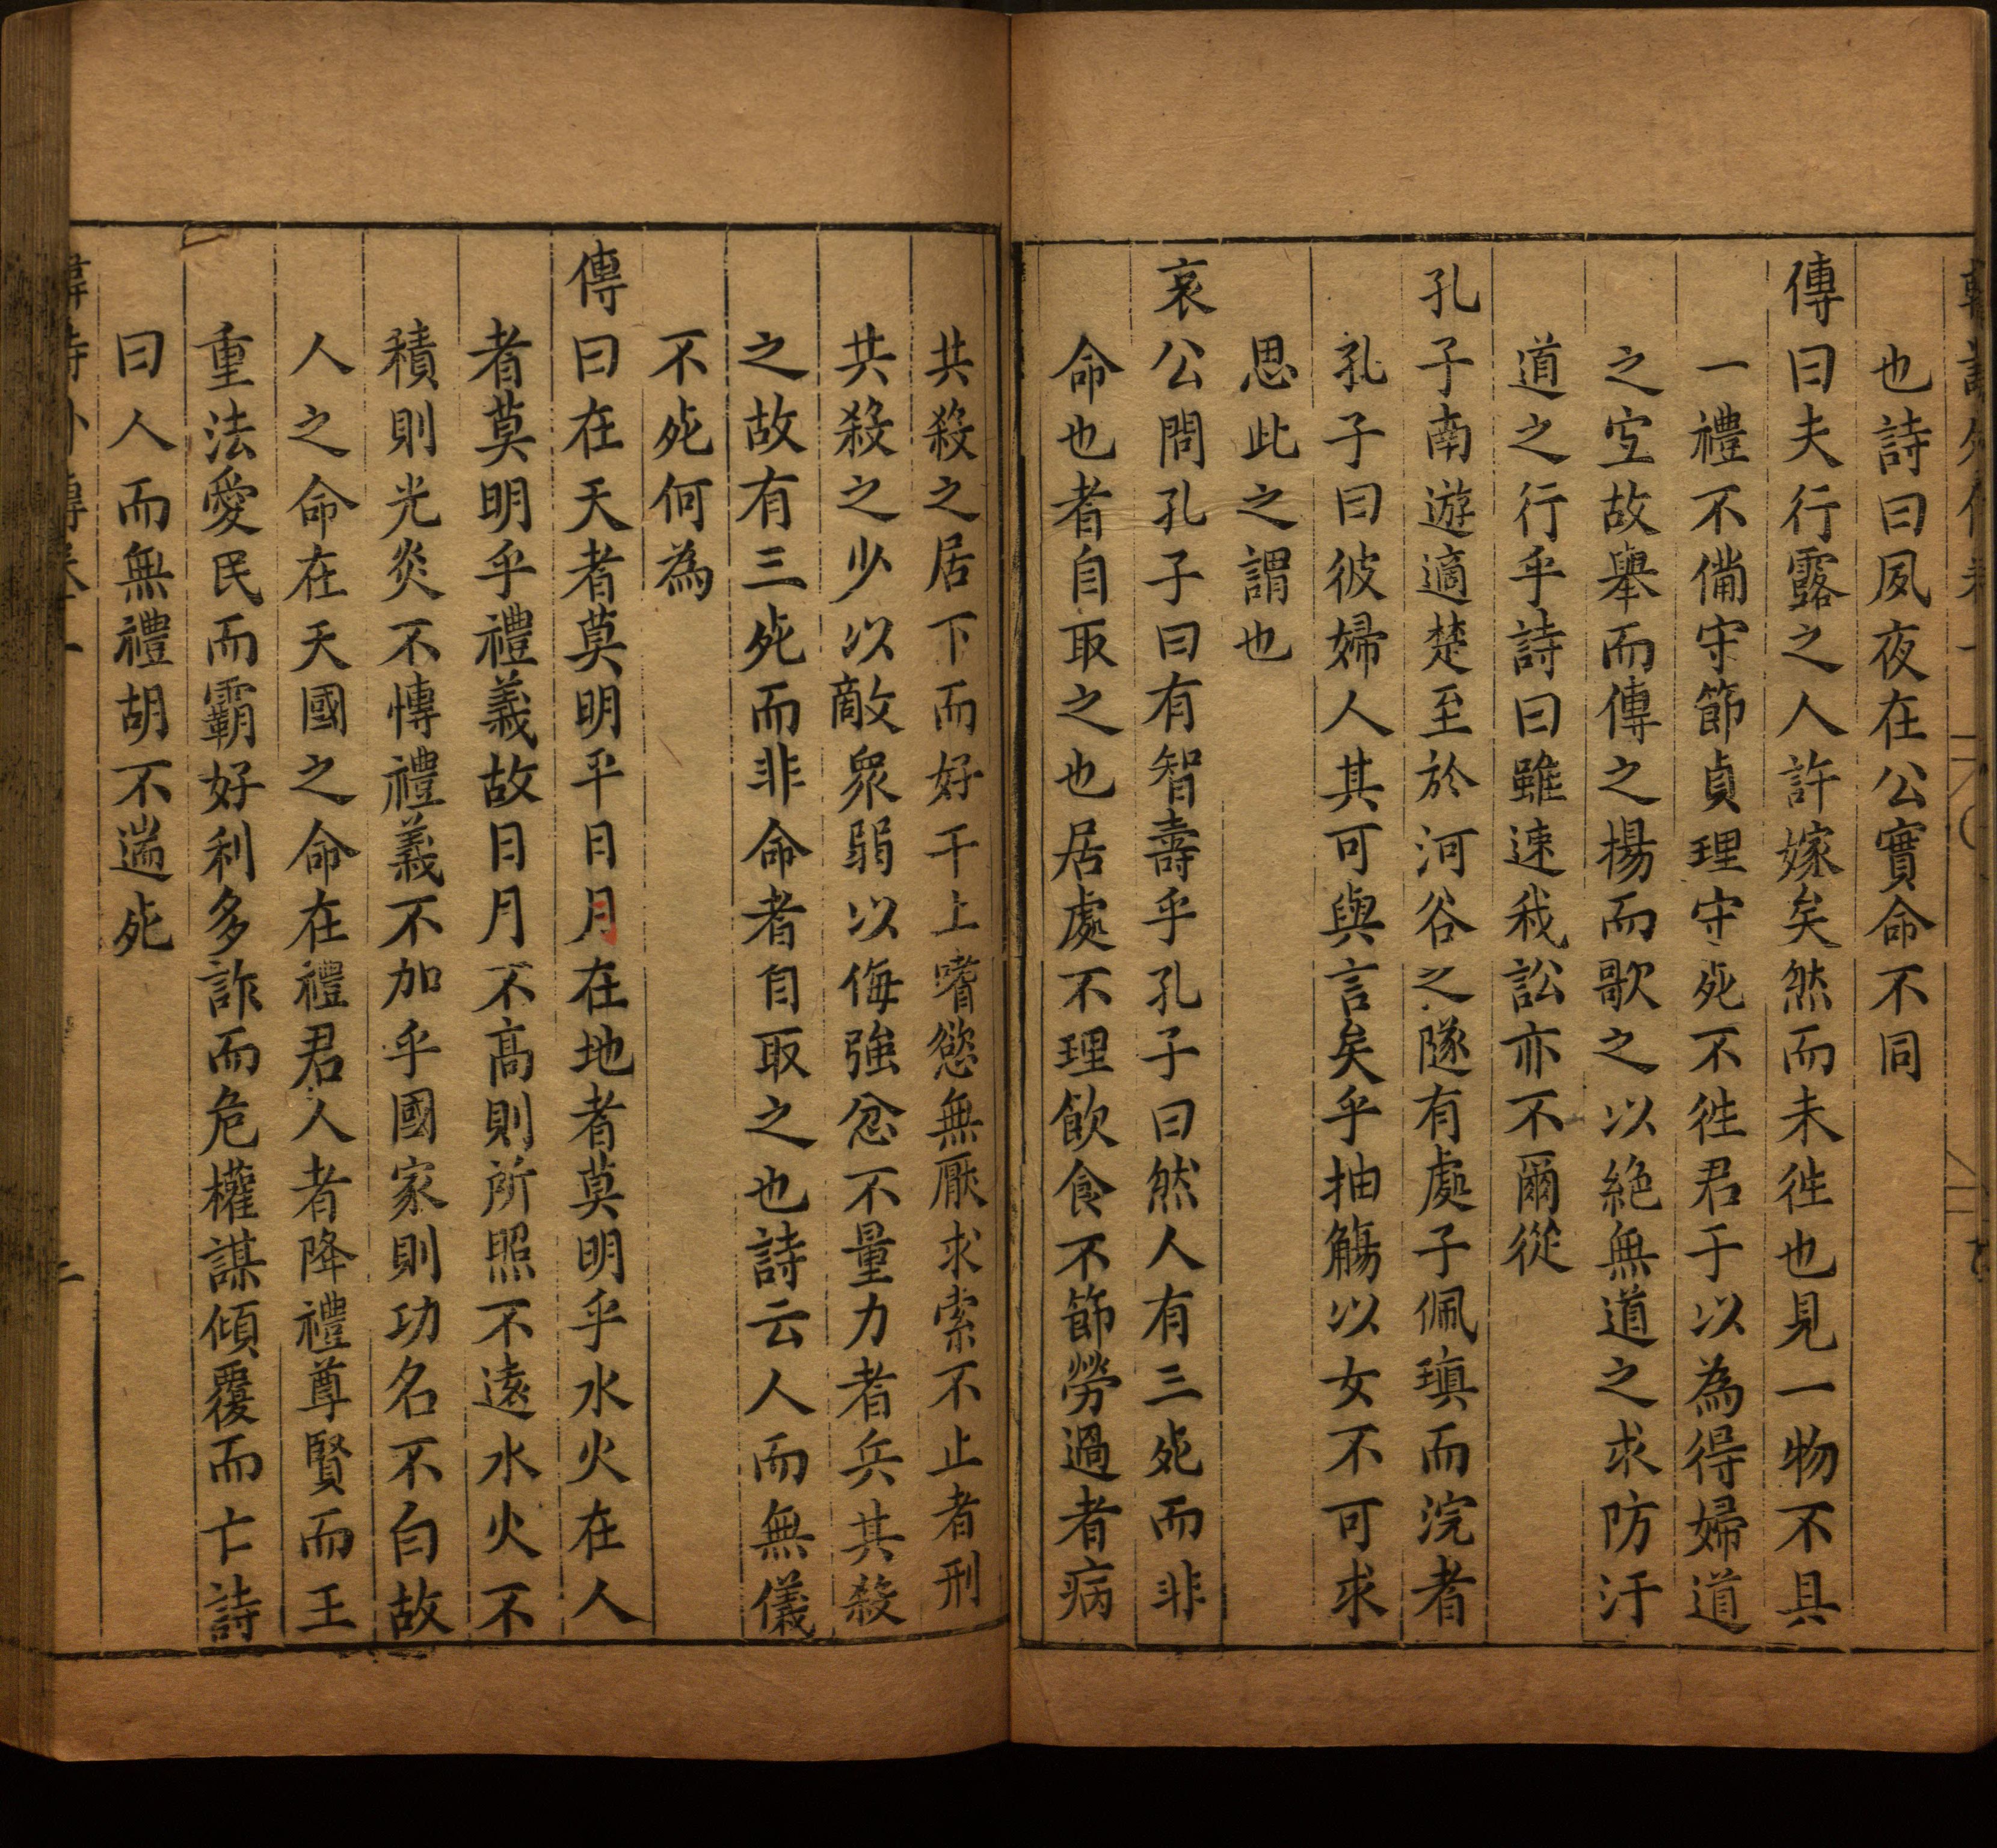 也詩曰夙夜在公實命不同
傳曰夫行露之人許嫁矣然而未徃也見一物不具
一禮不備守節貞理守死不徃君于以為得婦道
之宐故舉而傳之揚而歌之以絶無道之求防汙
道之行乎詩曰雖速我訟亦不爾從
孔子南遊適楚至於河谷之隧有處子佩瑱而浣者
孔子曰彼婦人其可與言矣乎抽觴以女不可求
思此之謂也
哀公問孔子曰有智壽乎孔子曰然人有三死而非
命也者自取之也居處不理飲食不節勞過者病
共殺之居下而好干上嗜慾無厭求索不止者刑
共殺之少以敵衆弱以侮強忿不量力者兵其殺
之故有三死而非命者自取之也詩云人而無儀
不死何為
傳曰在天者莫明乎日月在地者莫明乎水火在人
者莫明乎禮義故日月不高則所照不遠水火不
積則光炎不愽禮義不加乎國家則功名不白故
人之命在天國之命在禮君人者降禮尊賢而王
重法愛民而霸好利多詐而危權謀傾覆而亡詩
曰人而無禮胡不遄死